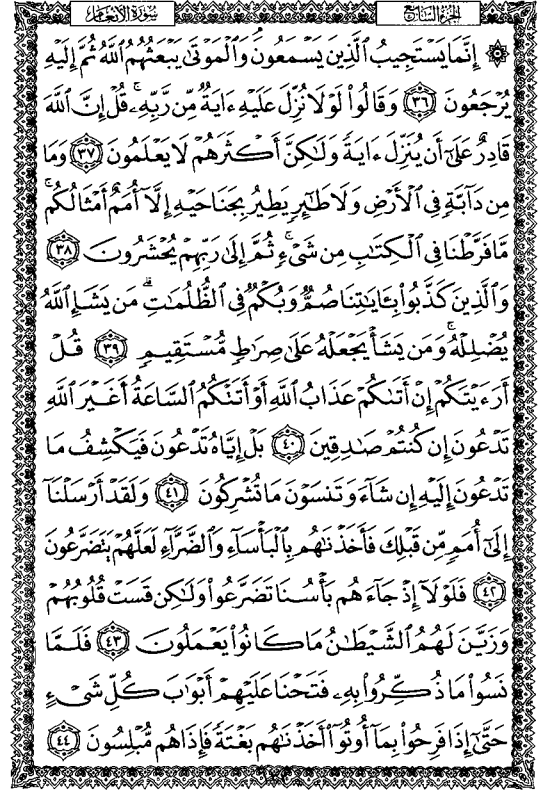 الجزء السابع
سورة الأنعام
۞ إِنَّمَا يَسْتَجِيبُ الَّذِينَ يَسْمَعُونَ وَالْمَوْتَىٰ يَبْعَثُهُمُ اللَّهُ ثُمَّ إِلَيْهِ
يُرْجَعُونَ ٣٦ وَقَالُوا۟ لَوْلَا نُزِّلَ عَلَيْهِ ءَايَةٌ مِّن رَّبِّهِۦ ۚ قُلْ إِنَّ اللَّهَ
قَادِرٌ عَلَىٰٓ أَن يُنَزِّلَ ءَايَةً وَلَٰكِنَّ أَكْثَرَهُمْ لَا يَعْلَمُونَ ٣٧ وَمَا
مِن دَآبَّةٍ فِى الْأَرْضِ وَلَا طَٰٓئِرٍ يَطِيرُ بِجَنَاحَيْهِ إِلَّآ أُمَمٌ أَمْثَالُكُم ۚ
مَّا فَرَّطْنَا فِى الْكِتَٰبِ مِن شَىْءٍ ۚ ثُمَّ إِلَىٰ رَبِّهِمْ يُحْشَرُونَ ٣٨
وَالَّذِينَ كَذَّبُوا۟ بِـَٔايَٰتِنَا صُمٌّ وَبُكْمٌ فِى الظُّلُمَٰتِ ۗ مَن يَشَإِ اللَّهُ
يُضْلِلْهُ ۚ وَمَن يَشَأْ يَجْعَلْهُ عَلَىٰ صِرَٰطٍ مُّسْتَقِيمٍ ٣٩ قُلْ
أَرَءَيْتَكُمْ إِنْ أَتَىٰكُمْ عَذَابُ اللَّهِ أَوْ أَتَتْكُمُ السَّاعَةُ أَغَيْرَ اللَّهِ
تَدْعُونَ إِن كُنتُمْ صَٰدِقِينَ ٤٠ بَلْ إِيَّاهُ تَدْعُونَ فَيَكْشِفُ مَا
تَدْعُونَ إِلَيْهِ إِن شَآءَ وَتَنسَوْنَ مَا تُشْرِكُونَ ٤١ وَلَقَدْ أَرْسَلْنَآ
إِلَىٰٓ أُمَمٍ مِّن قَبْلِكَ فَأَخَذْنَٰهُم بِالْبَأْسَآءِ وَالضَّرَّآءِ لَعَلَّهُمْ يَتَضَرَّعُونَ
٤٢ فَلَوْلَآ إِذْ جَآءَهُم بَأْسُنَا تَضَرَّعُوا۟ وَلَٰكِن قَسَتْ قُلُوبُهُمْ
وَزَيَّنَ لَهُمُ الشَّيْطَٰنُ مَا كَانُوا۟ يَعْمَلُونَ ٤٣ فَلَمَّا
نَسُوا۟ مَا ذُكِّرُوا۟ بِهِۦ فَتَحْنَا عَلَيْهِمْ أَبْوَٰبَ كُلِّ شَىْءٍ
حَتَّىٰٓ إِذَا فَرِحُوا۟ بِمَآ أُوتُوٓا۟ أَخَذْنَٰهُم بَغْتَةً فَإِذَا هُم مُّبْلِسُونَ ٤٤